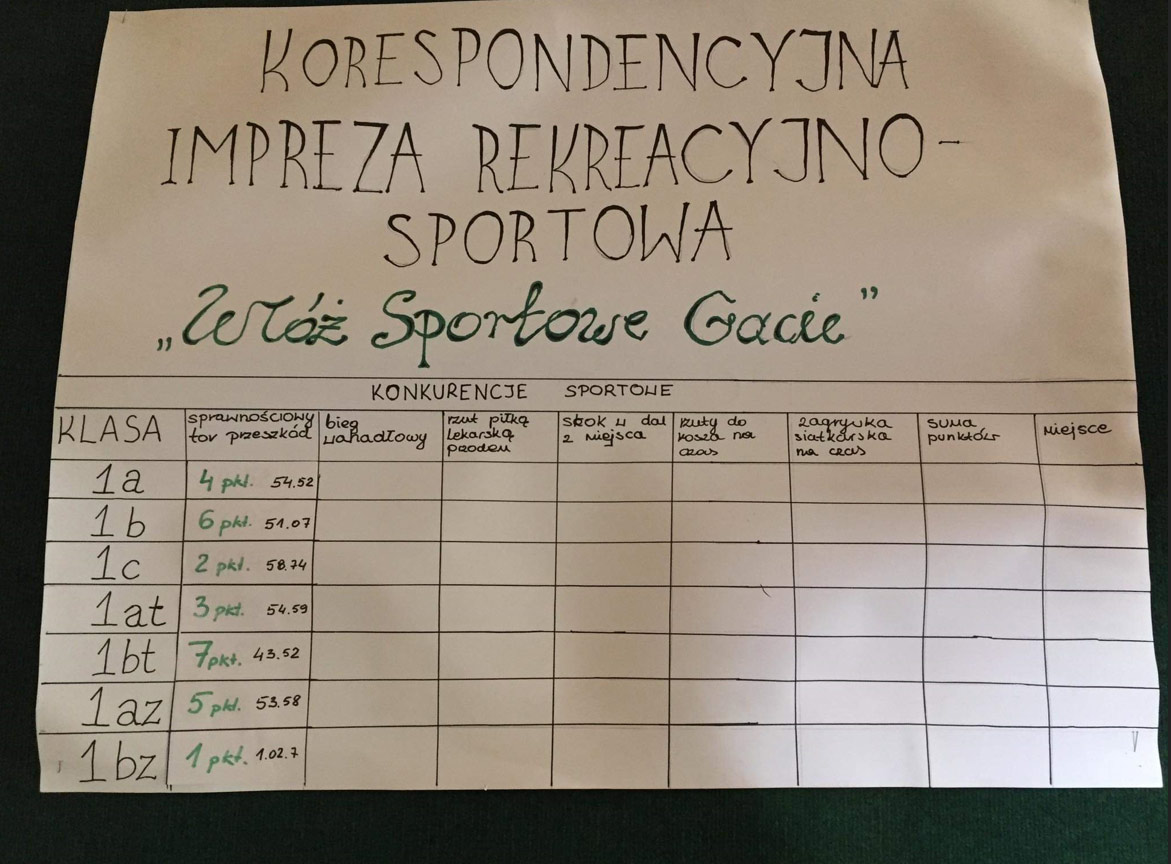 KORESPONDENCYJNA
IMPREZA REKREACYJNO-
SPORTOWA
„Włóż Sportowe Gacie”
KONKURENCJE SPORTOWE
KLASA
sprawnościowy
tor przeszkód
bieg
wahadłowy
rzut piłką
lekarską
przodem
skok w dal
z miejsca
rzuty do
kosza na
czas
zagrywka
siatkarska
na czas
suma
punktów
miejsce
1a 4 pkt. 54.52
1b 6 pkt. 51.07
1c 2 pkt. 58.74
1at 3 pkt. 54.59
1bt 7 pkt. 43.52
1az 5 pkt. 53.58
1bz 1 pkt. 1.02.7